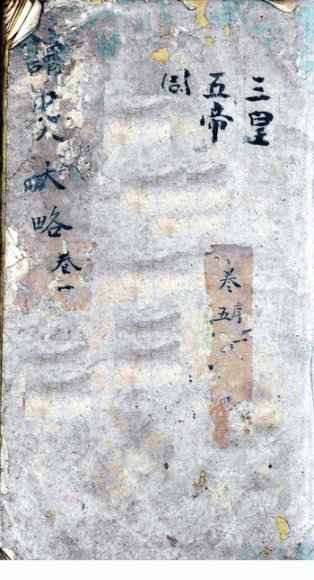 三皇
五帝
周
卷五
序
讀史大略卷一